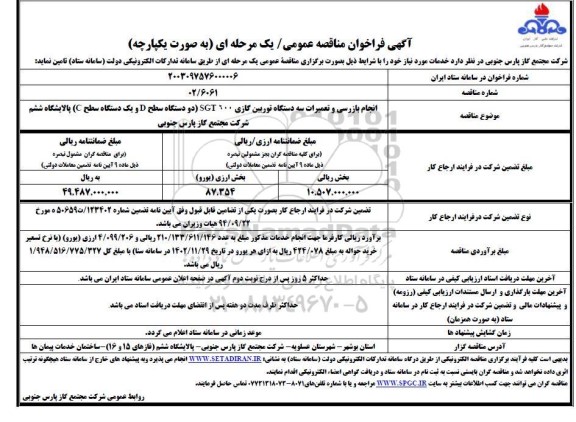 آگهی فراخوان مناقصه عمومی/ یک مرحله ای (به صورت یکپارچه)
شرکت مجتمع گاز پارس جنوبی در نظر دارد خدمات مورد نیاز خود را با شرایط ذیل بصورت برگزاری مناقصه عمومی یک مرحله ای از طریق سامانه تدارکات الکترونیکی دولت (سامانه ستاد) تامین نماید:
شماره فراخوان در سامانه ستاد ایران
۲۰۰۳۰۹۷۵۷۶۰۰۰۰۰۶
شماره مناقصه
۰۲/۶۰۶۱
موضوع مناقصه
انجام بازرسی و تعمیرات سه دستگاه توربین گازی SGT ۶۰۰ (دو دستگاه سطح D و یک دستگاه سطح C) پالایشگاه ششم
شرکت مجتمع گاز پارس جنوبی
مبلغ تضمین شرکت در فرایند ارجاع کار
مبلغ ضمانتنامه ارزی/ریالی
(برای کلیه مناقصه گران بجز مشمولین تبصره
ذیل ماده ۹ آیین نامه تضمین معاملات دولتی)
مبلغ ضمانتنامه ریالی
(برای مناقصه گران مشمول تبصره
ذیل ماده ۹ آیین نامه تضمین معاملات دولتی)
بخش ریالی
بخش ارزی (یورو)
به ریال
۱۰.۵۰۷.۰۰۰.۰۰۰
۸۷.۳۵۴
۴۹.۴۸۷.۰۰۰.۰۰۰
نوع تضمین شرکت در فرایند ارجاع کار
تضمین شرکت در فرایند ارجاع کار بصورت یکی از تضامین قابل قبول وفق آیین نامه تضمین شماره ۱۲۳۴۰۲/ت۵۰۶۵۹ ه مورخ
۹۴/۰۹/۲۲ هیات وزیران می باشد.
مبلغ برآوردی مناقصه
برآورد ریالی کارفرما جهت انجام خدمات مذکور مبلغ به عدد ۲۱۰/۱۳۳/۶۱۱/۱۴۶ ریالی و ۴/۰۹۹/۲۰۶ ارزی (یورو) (با نرخ تسعیر
خرید حواله به مبلغ ۴۲۴/۰۷۸ ریال به ازای هر یورو در تاریخ ۱۴۰۲/۱۱/۲۹ در سامانه سنا) با مبلغ کل ۱/۹۴۸/۵۱۶/۷۷۵/۳۲۷
ریال می باشد.
آخرین مهلت دریافت اسناد ارزیابی کیفی در سامانه ستاد
حداکثر ۵ روز پس از درج نوبت دوم آگهی در صفحه اعلان عمومی سامانه ستاد ایران می باشد.
آخرین مهلت بارگذاری و ارسال مستندات ارزیابی کیفی (رزومه)
و پیشنهادات مالی و تضمین شرکت در فرایند ارجاع کار در سامانه
ستاد (به صورت همزمان)
حداکثر ظرف مدت دو هفته پس از انقضای مهلت دریافت اسناد می باشد.
زمان گشایش پیشنهاد ها
موعد زمانی در سامانه ستاد اعلام می گردد.
آدرس مناقصه گزار
استان بوشهر – شهرستان عسلویه – شرکت مجتمع گاز پارس جنوبی – پالایشگاه ششم (فازهای ۱۵ و ۱۶) –ساختمان خدمات پیمان ها
بدیهی است کلیه فرآیند برگزاری مناقصه الکترونیکی از طریق درگاه سامانه تدارکات الکترونیکی دولت (سامانه ستاد) به نشانی: WWW.SETADIRAN.IR انجام می پذیرد وبه پیشنهاد های خارج از سامانه ستاد هیچگونه ترتیب
اثری داده نخواهد شد و مناقصه گران بایستی نسبت به ثبت نام در سامانه ستاد و دریافت گواهی امضاء الکترونیکی اقدام نمایند.
مناقصه گران می توانند جهت کسب اطلاعات بیشتر به سایت WWW.SPGC.IR مراجعه و یا با شماره تلفن‌های ۰۷۷۳۱۳۱۸۰۷۳-۸۰۷۱ تماس حاصل فرمایند.
روابط عمومی شرکت مجتمع گاز پارس جنوبی